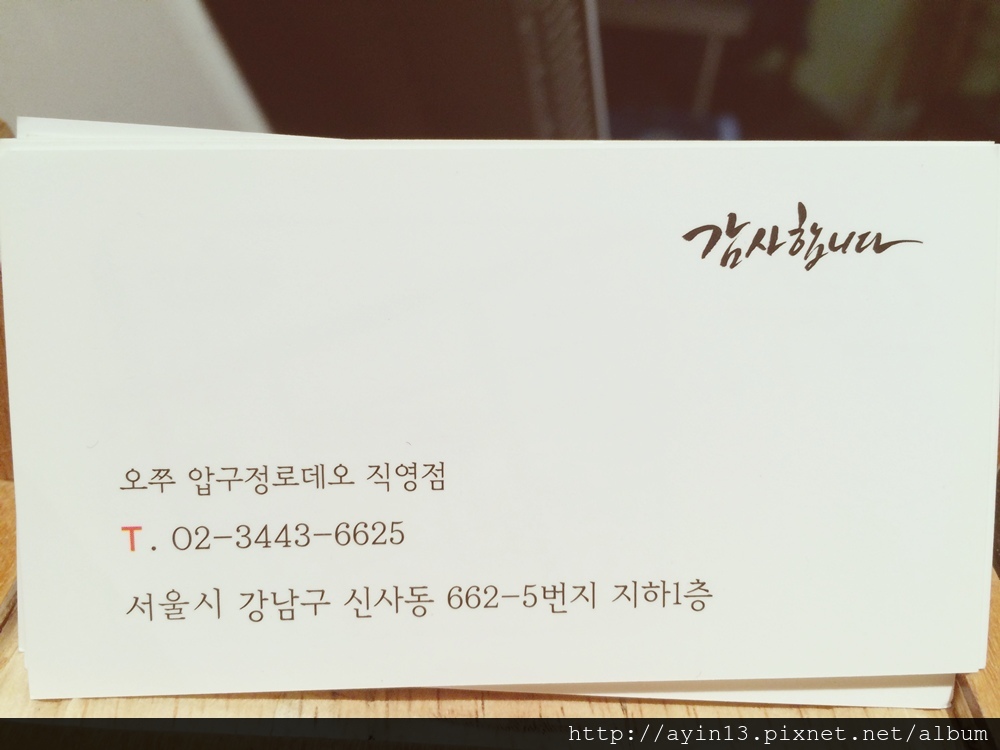 감사합니다
오쭈 압구정로데오 직영점
T. 02-3443-6625
서울시 강남구 신사동 662-5번지 지하1층
http://ayin13.pixnet.net/album